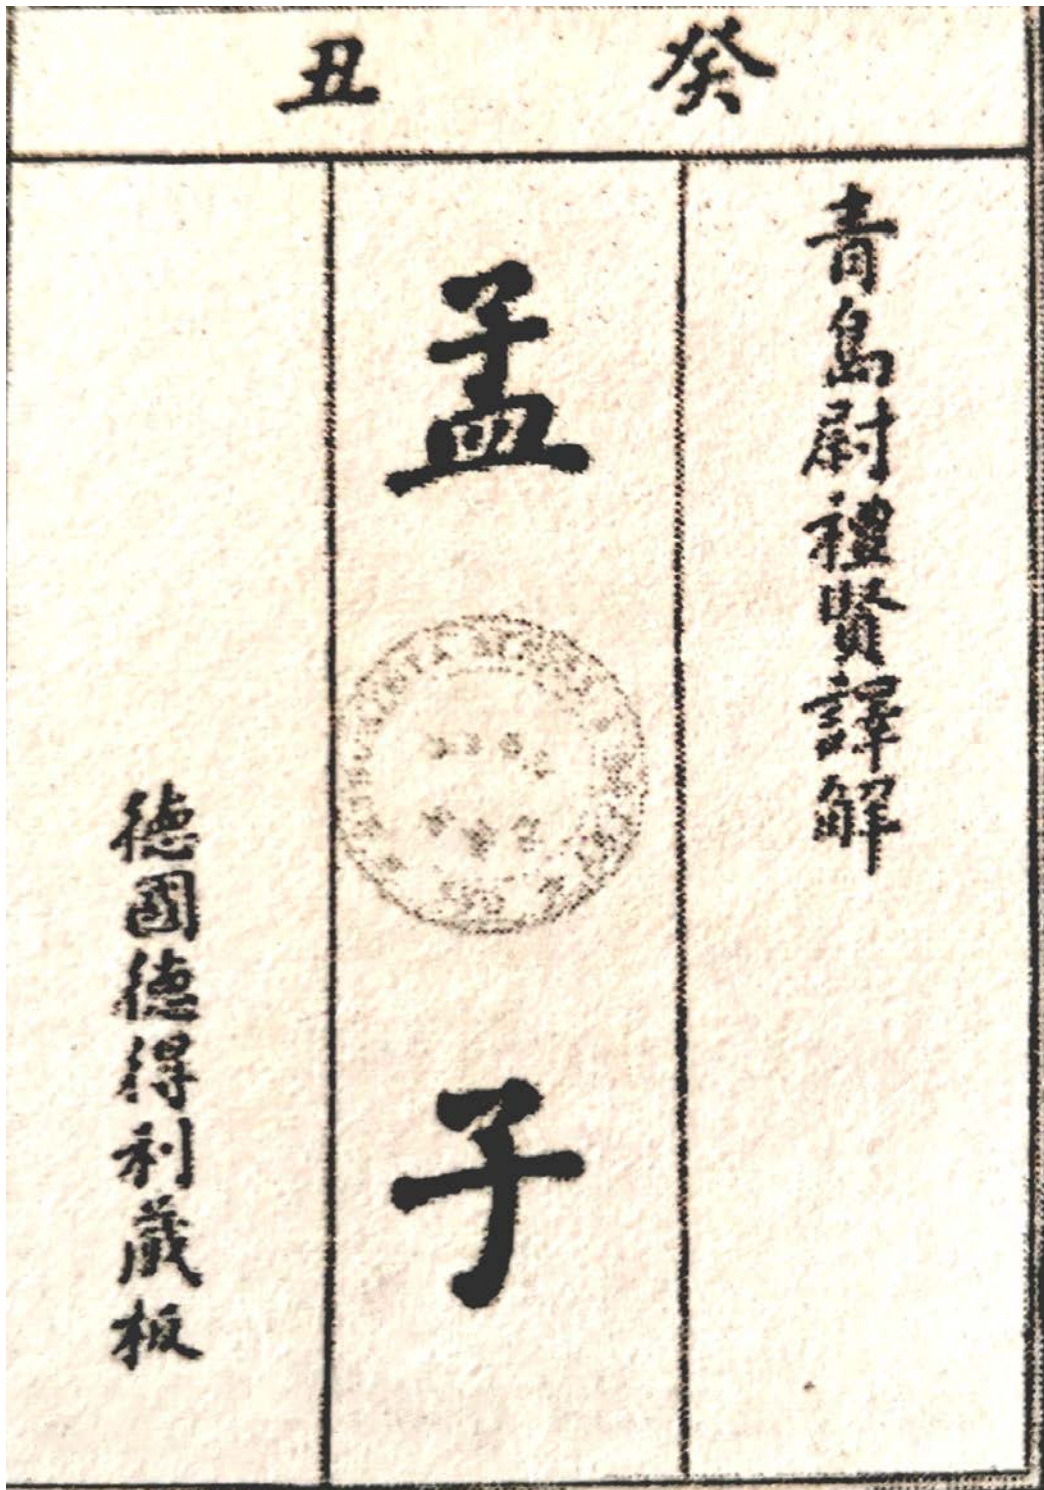 癸丑
青島尉禮賢譯解
孟子
德國德得利藏板